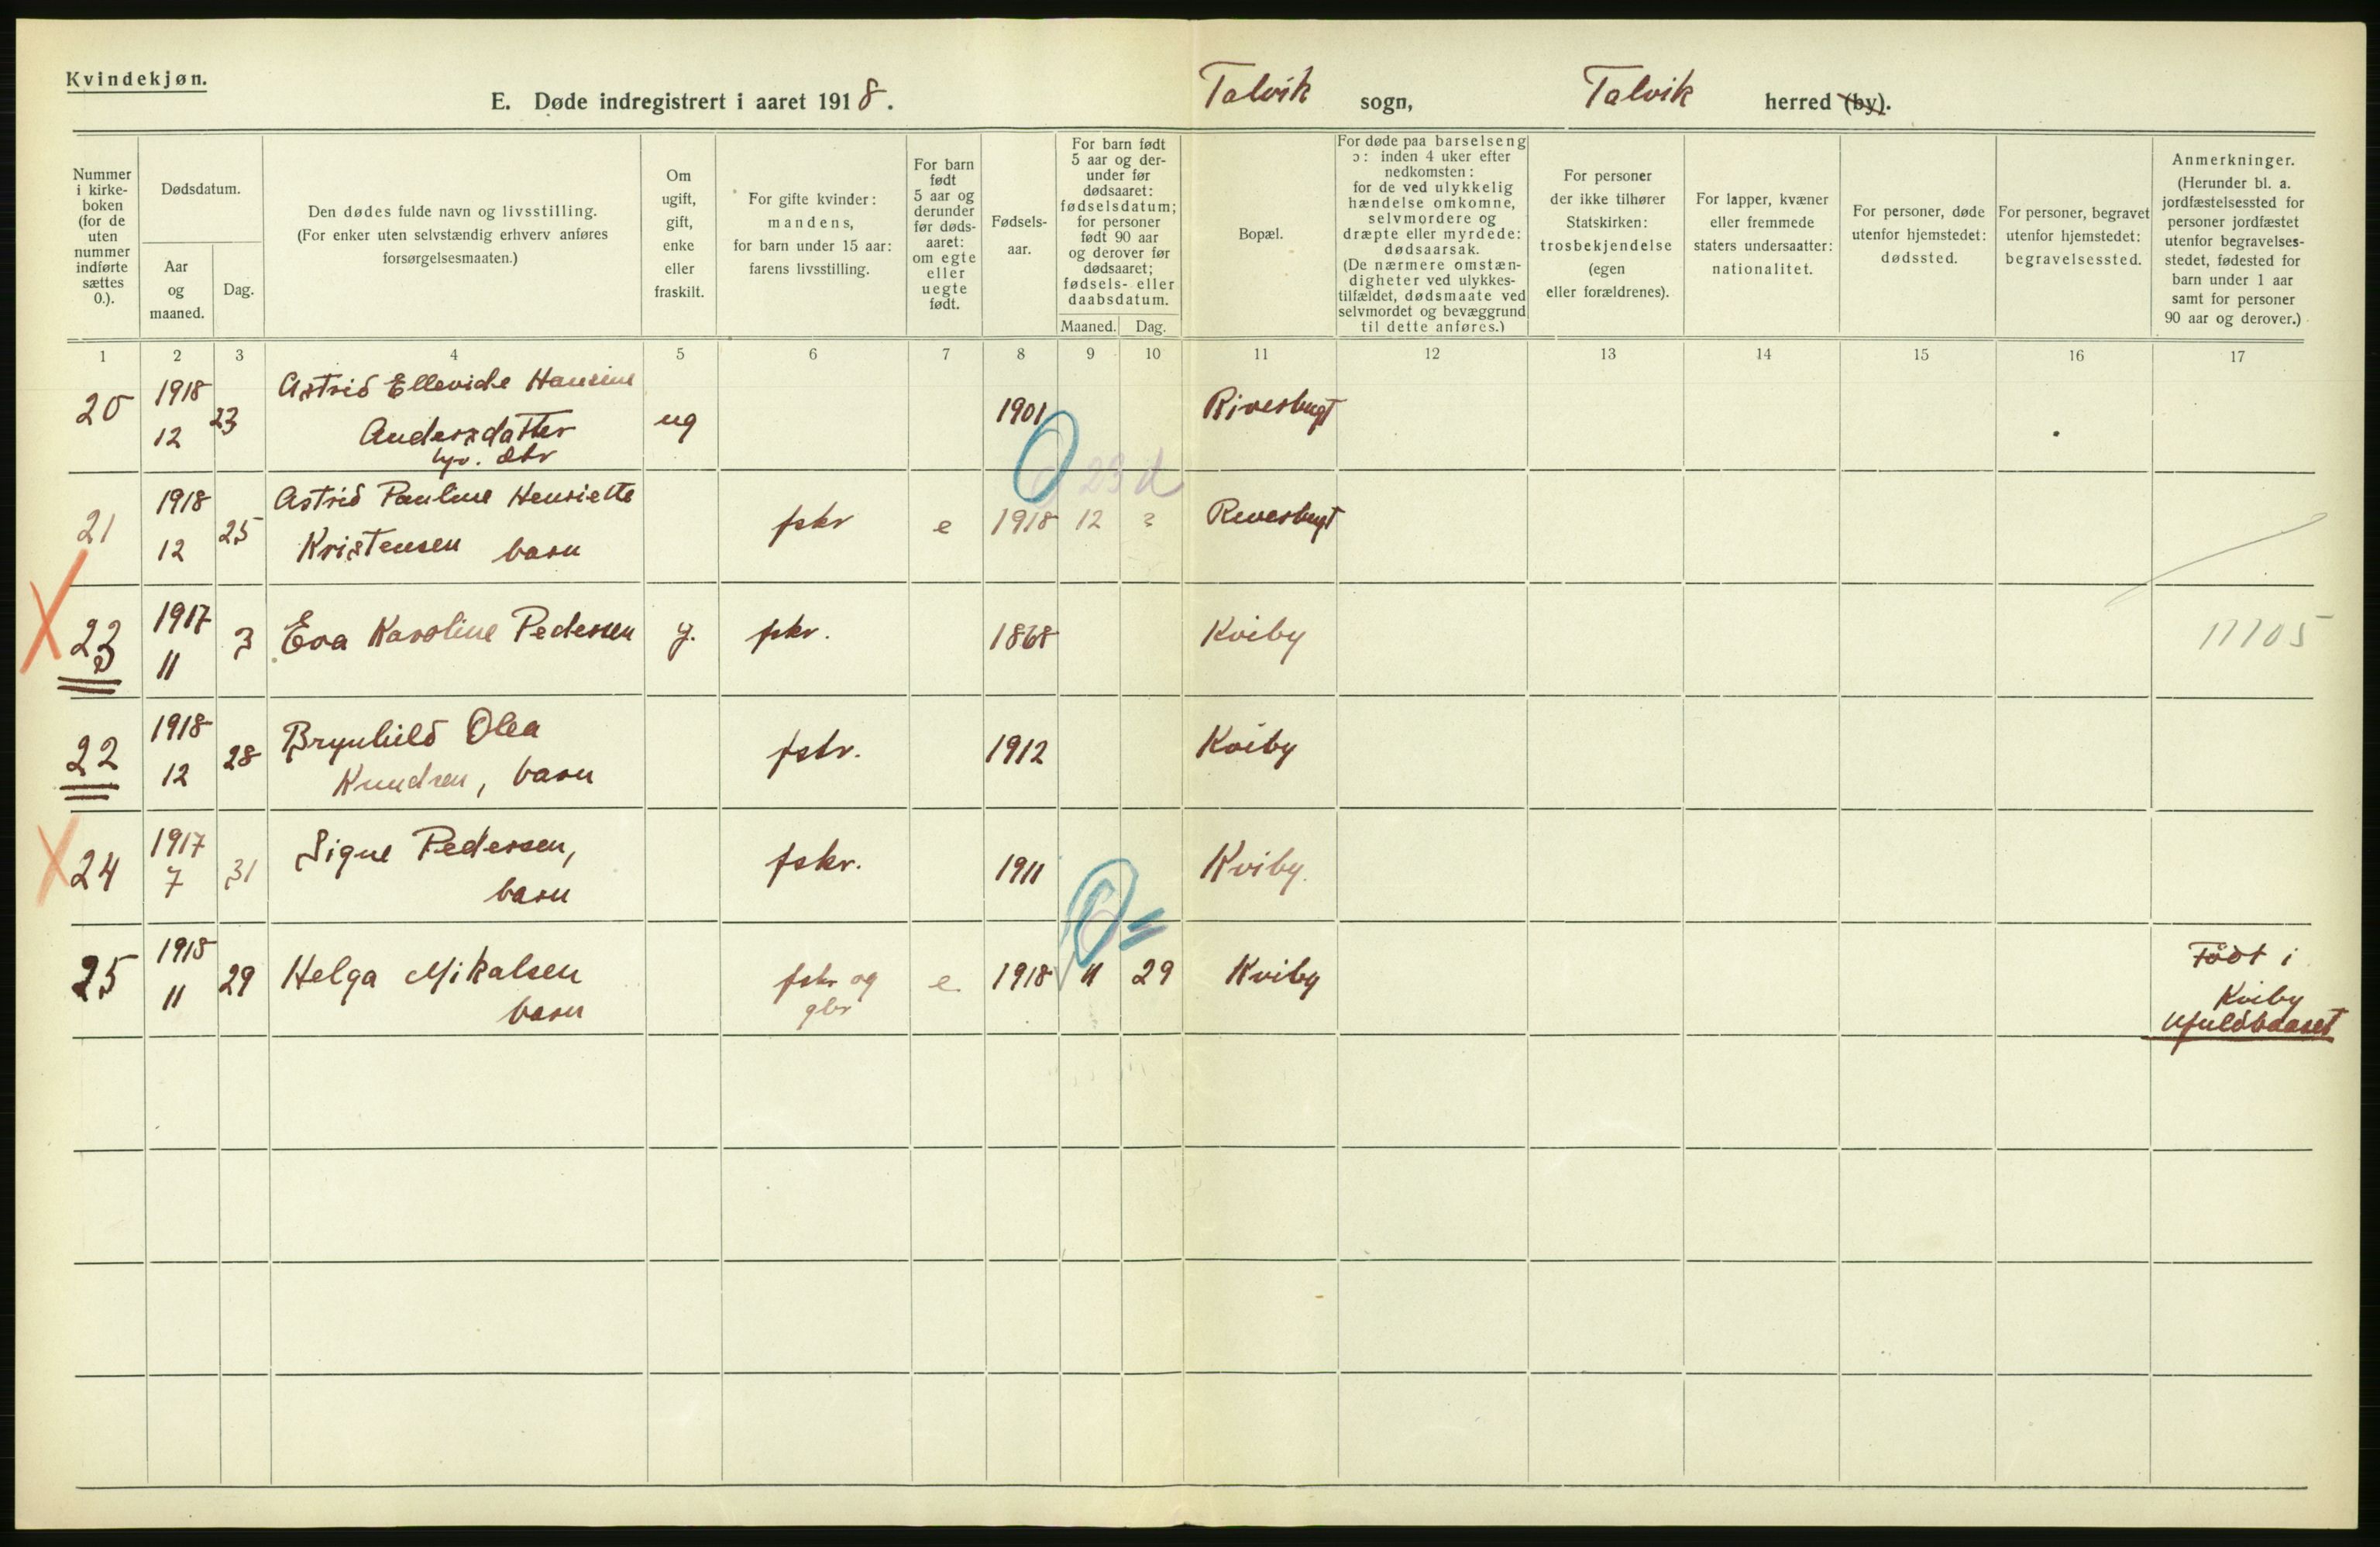 Kvindekjøn.
E. Døde indregistrert i aaret 1918.
Talvik sogn, Talvik herred (by).
Nummer i kirke-boken (for de uten nummer indførte sættes 0.).
Dødsdatum.
Aar og maaned.
Dag.
Den dødes fulde navn og livsstilling.
(For enker uten selvstændig erhverv anføres
forsørgelsesmaaten.)
Om ugift, gift, enke eller fraskilt.
For gifte kvinder:
mandens,
for barn under 15 aar:
farens livsstilling.
For barn født 5 aar og derunder før døds-aaret: om egte eller uegte født.
Fødsels-aar.
For barn født 5 aar og der-under før dødsaaret: fødselsdatum; for personer født 90 aar og derover før dødsaaret; fødsels- eller daabsdatum.
Maaned. Dag.
Bopæl.
For døde paa barselseng
ɔ: inden 4 uker efter
nedkomsten:
for de ved ulykkelig
hændelse omkomne,
selvmordere og
dræpte eller myrdede:
dødsaarsak.
(De nærmere omstæn-
digheter ved ulykkes-
tilfældet, dødsmaate ved
selvmordet og bevæggrund
til dette anføres.)
For personer
der ikke tilhører
Statskirken:
trosbekjendelse
(egen
eller forældrenes).
For lapper, kvæner
eller fremmede
staters undersaatter:
nationalitet.
For personer, døde
utenfor hjemstedet:
dødssted.
For personer, begravet
utenfor hjemstedet:
begravelsessted.
Anmerkninger.
(Herunder bl. a.
jordfæstelsessted for
personer jordfæstet
utenfor begravelses-
stedet, fødested for
barn under 1 aar
samt for personer
90 aar og derover.)
1 2 3 4 5 6 7 8 9 10 11 12 13 14 15 16 17
20 1918 12 23 Astrid Ellevide Hansine
Andersdatter
ug 1901 Rivesbugt
dtr
0 29 d
21 1918 12 25 Astrid Pauline Henriette
Kristensen barn
fskr e 1918 12 Revesbugt
23 1917 11 3 Eva Karoline Pedersen g. fskr. 1868 Kviby 11105
22 1918 12 28 Brynhild Olea
Knudsen, barn
fskr. 1912 Kviby
24 1917 7 31 Signe Pedersen,
barn
fskr. 1911 Kviby.
0
25 1918 11 29 Helga Mikalsen
barn
fskr og
gbr
e 1918 11 29 Kviby
Födt i
Kviby